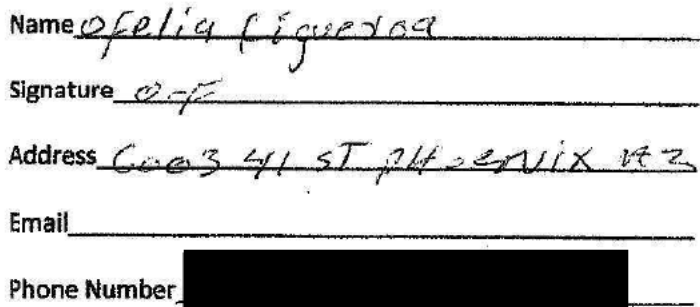 Name Ofelia Figueroa
Signature O-F
Address 6003 41 ST PHOENIX AZ
Email
Phone Number